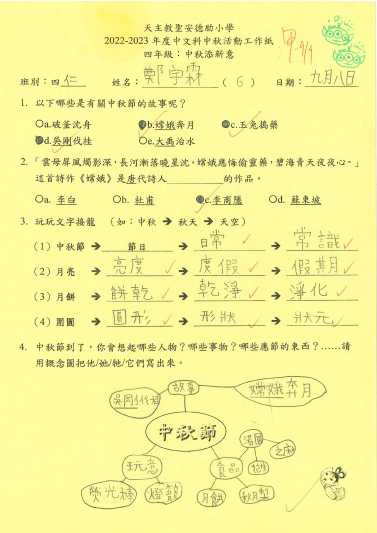 天主教聖安德肋小學
2022-2023 年度中文科中秋活動工作紙
四年級：中秋添新意
甲- 9/9
班別：四仁 姓名：鄭宇霖 ( 6 ) 日期：九月八日
1. 以下哪些是有關中秋節的故事呢？
a.破釜沈舟 b.嫦娥奔月 c.玉兔搗藥
d.吳剛伐桂 e.大禹治水
2.「雲母屏風燭影深，長河漸落曉星沈。嫦娥應悔偷靈藥，碧海青天夜夜心。」
這首詩作《嫦娥》是唐代詩人__________的作品。
a. 李白 b. 杜甫 c.李商隱 d. 蘇東坡
3. 玩玩文字接龍 （如：中秋 → 秋天 → 天空）
(1) 中秋節 → 節日 → 日常 → 常識
(2) 月亮 → 亮度 → 度假 → 假期
(3) 月餅 → 餅乾 → 乾淨 → 淨化
(4) 團圓 → 圓形 → 形狀 → 狀元
4. 中秋節到了，你會想起哪些人物？哪些事物？哪些應節的東西？……請
用概念圖把他/她/牠/它們寫出來。
故事
吳剛伐桂
嫦娥奔月
中秋節
湯圓
芝麻
花生
玩意
食品
熒光棒
燈籠
月餅
秋月梨